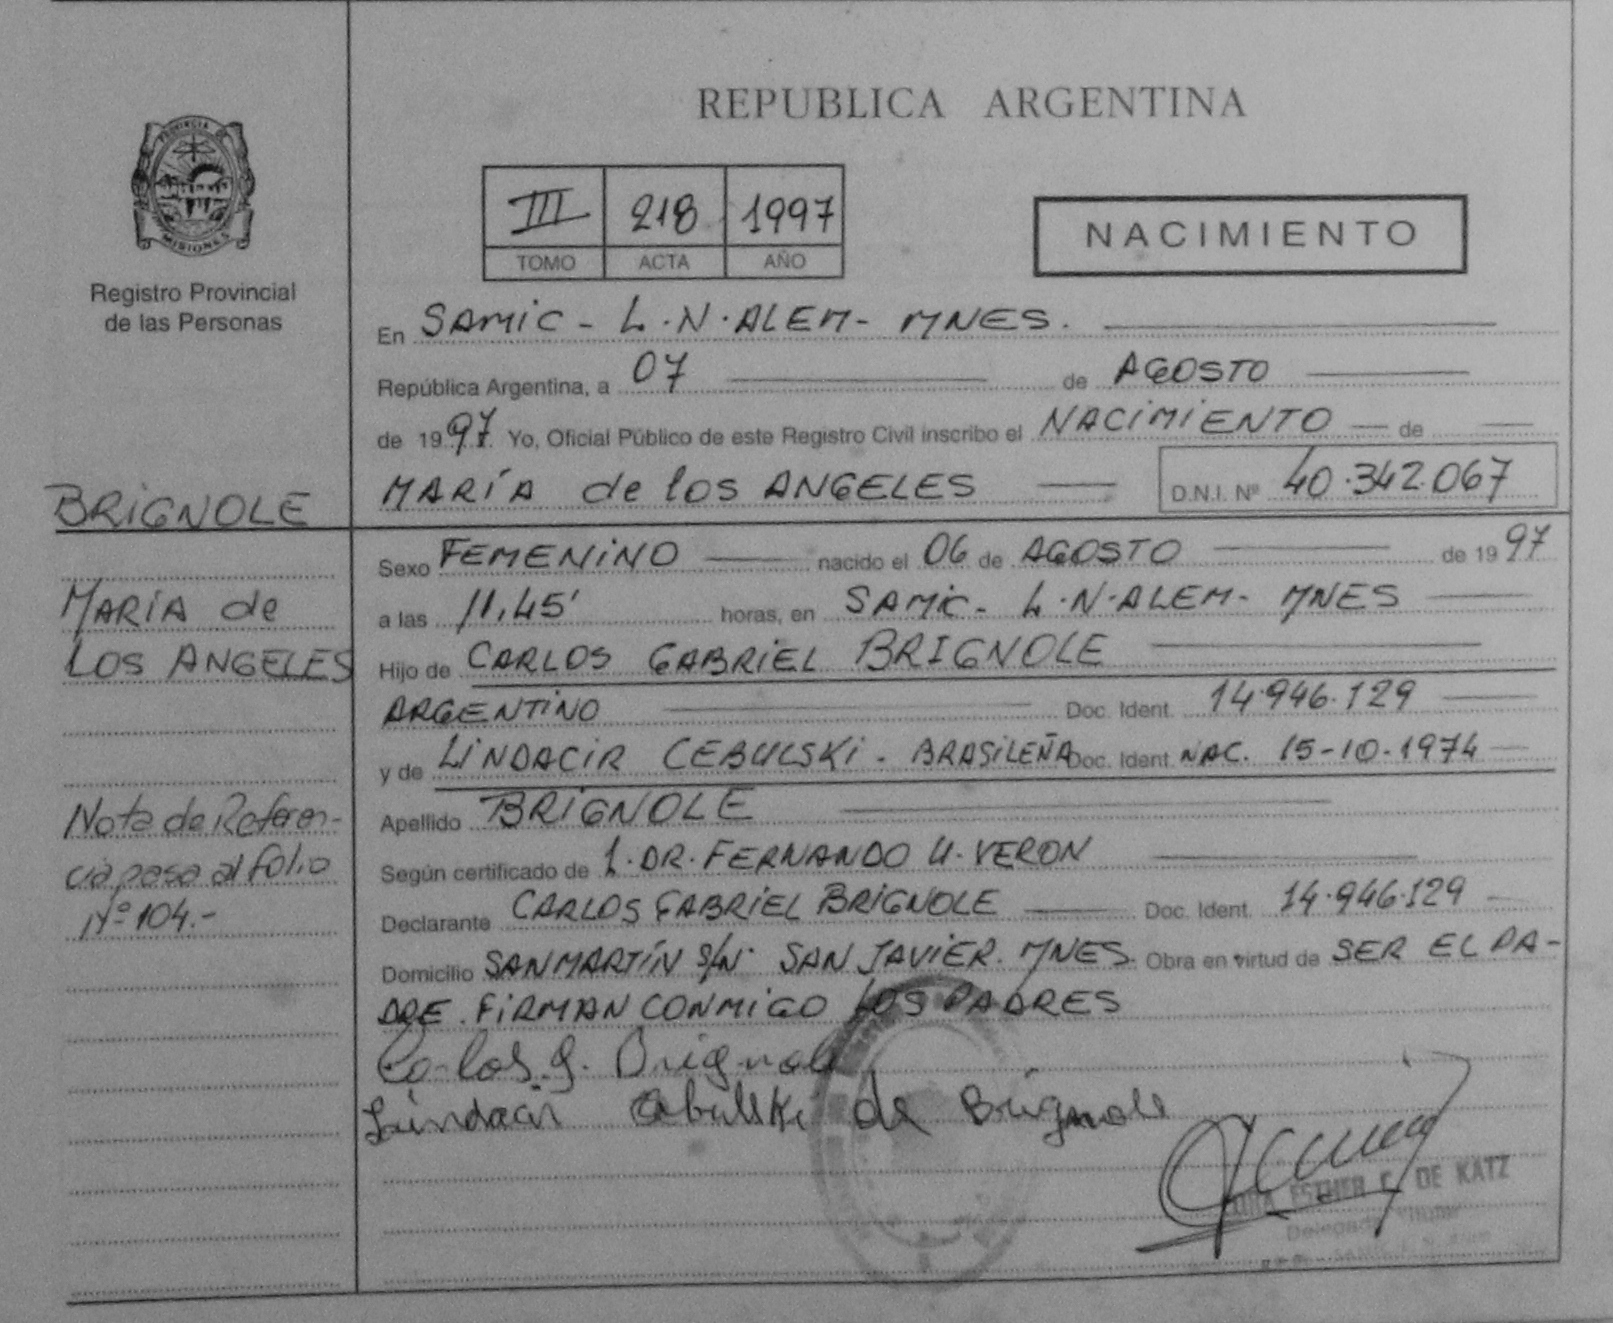 PROVINCIA DE
MISIONES
Registro Provincial
de las Personas
BRIGNOLE
MARÍA de
LOS ANGELES
Nota de Referen-
cia pasa al folio
Nº 104.-
REPUBLICA ARGENTINA
III 218 1997
TOMO ACTA AÑO
NACIMIENTO
En SAMIC - L.N.ALEM - MNES.
República Argentina, a 07 de AGOSTO
de 1997. Yo, Oficial Público de este Registro Civil inscribo el NACIMIENTO de
MARÍA de los ANGELES D.N.I. Nº 40.342.067
Sexo FEMENINO nacido el 06 de AGOSTO de 1997
a las 11,45' horas, en SAMIC - L.N.ALEM - MNES
Hijo de CARLOS GABRIEL BRIGNOLE
ARGENTINO Doc. Ident. 14.946.129
y de LINDACIR CEBULSKI - BRASILEÑA Doc. Ident. NAC. 15-10-1974
Apellido BRIGNOLE
Según certificado de 1. DR. FERNANDO U. VERON
Declarante CARLOS GABRIEL BRIGNOLE Doc. Ident. 14.946.129
Domicilio SAN MARTÍN S/Nº SAN JAVIER. MNES. Obra en virtud de SER EL PA-
DRE. FIRMAN CONMIGO LOS PADRES
Carlos G. Brignole
Lindacir Cebulski de Brignole
ESTHER C. DE KATZ
Delegada Titular